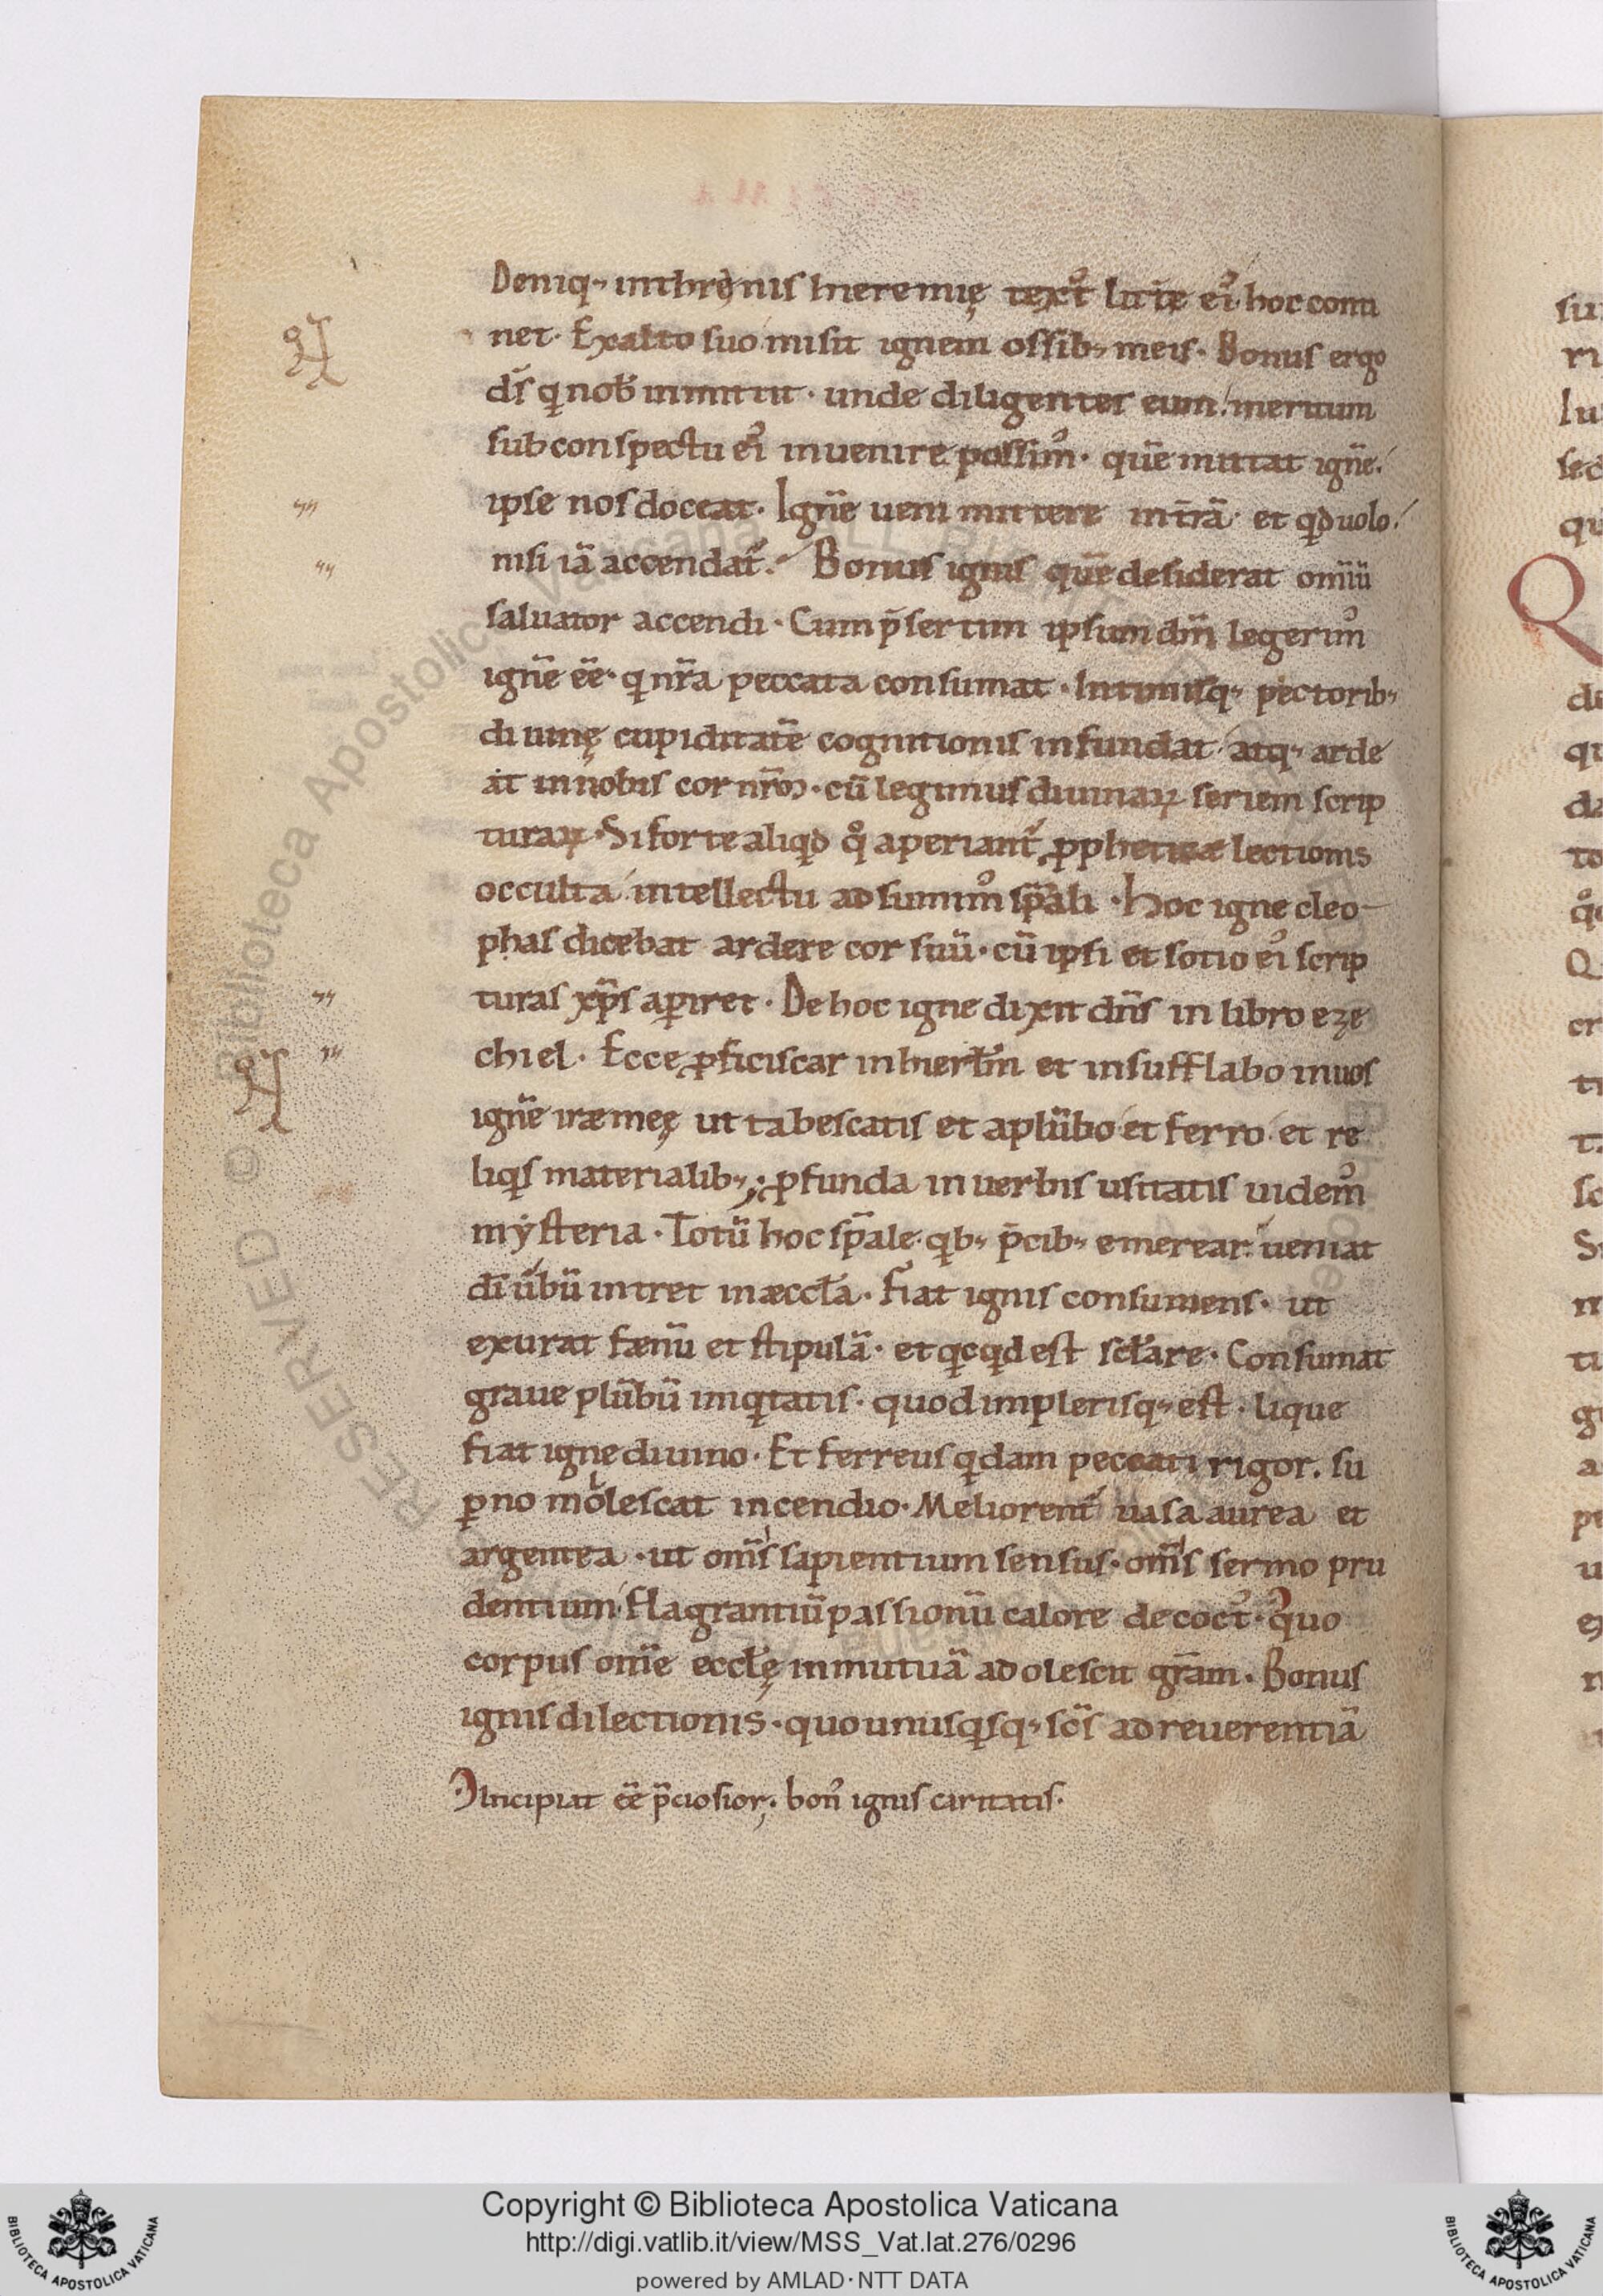 Deniq; inthrenis hieremię textꝰ lit̄ie eiꝰ hoc conti
net. Exalto suo misit ignem ossib; meis. Bonus ergo
ds̄ qi nob̄ inmittit. unde diligenter eum. meritum
sub conspectu eiꝰ inuenire possimꝰ. quē mittat ignē.
ipse nos doceat. Ignē ueni mittere in t̄rā. et qđ uolo.
nisi iā accendat᷑. Bonus ignis quē desiderat omniū
saluator accendi. Cum p̄sertim ipsum dn̄m legerimꝰ
ignē ēē. qi nr̄a peccata consumat. Intimisq; pectorib;
diuinę cupiditatē cognitionis infundat. atq; arde
at in nobis cor nr̄m. cū legimus diuinaꝝ seriem scrip
turaꝝ. Si forte aliqđ qͦ aperiant᷑ ꝓpheticæ lectionis
occulta intellectu adsumimꝰ sp̄ali. Hoc igne cleo-
phas dicebat ardere cor suū. cū ipsi et sotio eiꝰ scrip
turas xp̄s aꝑiret. De hoc igne dixit dn̄s in libro eze
chiel. Ecce ꝓficiscar in hierłm et insufflabo in uos
ignē iræ meę ut tabescatis et aplūbo et ferro et re
liqis materialib;. ꝓfunda in uerbis usitatis uidemꝰ
mẏsteria. Totū hoc sp̄ale. qib; p̄cib; emerear. ueniat
dī ūbū intret in æccła. Fiat ignis consumens. ut
exurat fænū et stipulā. et qicqid est scłare. Consumat
graue plūbū iniqitatis. quod implerisq; est. lique
fiat igne diuino. Et ferreus qidam peccati rigor. su
ꝑno mollescat incendio. Meliorent᷑ uasa aurea et
argentea. ut omīs sapientium sensus. omīs sermo pru
dentium flagrantiū passionū calore decoctꝰ. Quo
corpus omē eccłę in mutuā adolescit gr̄am. Bonus
ignis dilectionis. quo unusqisq; sc̄s ad reuerentiā
Incipiat ēē p̄ciosior. bonꝰ ignis caritatis.
Copyright © Biblioteca Apostolica Vaticana
http://digi.vatlib.it/view/MSS_Vat.lat.276/0296
powered by AMLAD·NTT DATA
BIBLIOTECA APOSTOLICA VATICANA
BIBLIOTECA APOSTOLICA VATICANA